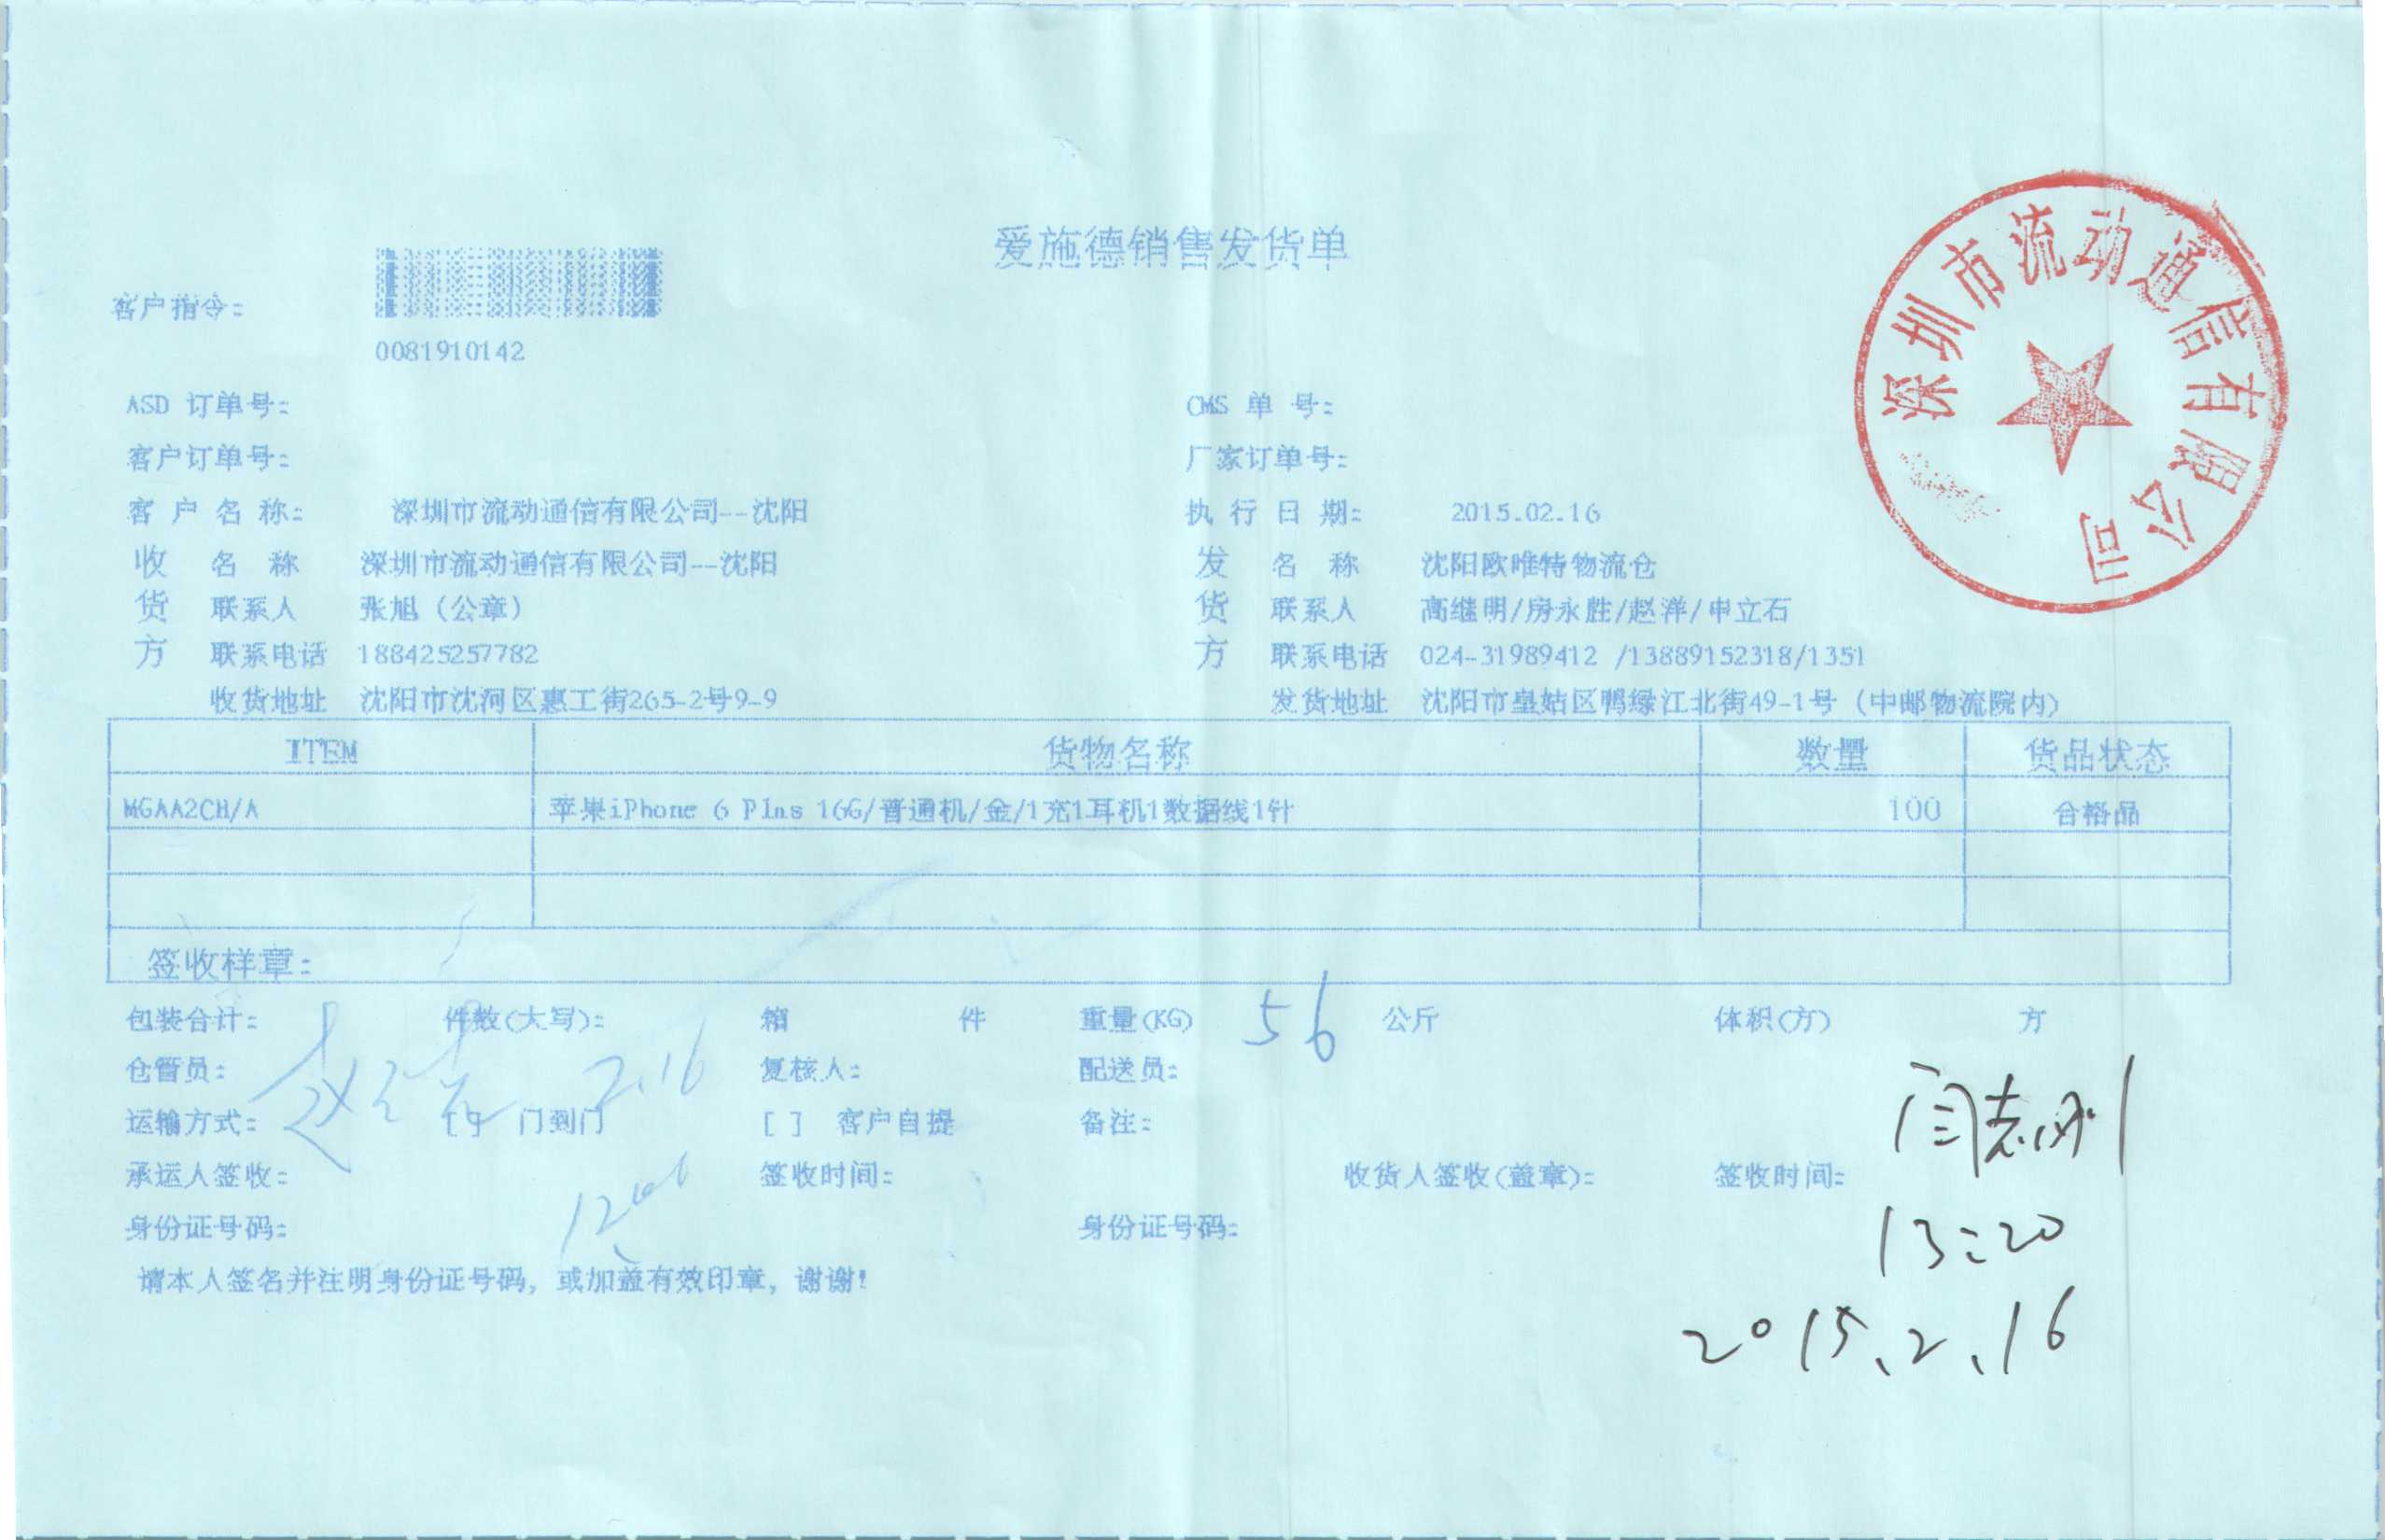 爱施德销售发货单
深圳市流动通信有限公司
客户指令:
0081910142
ASD 订单号: CMS 单 号:
客户订单号: 厂家订单号:
客 户 名 称: 深圳市流动通信有限公司--沈阳 执 行 日 期: 2015.02.16
收 名 称 深圳市流动通信有限公司--沈阳 发 名 称 沈阳欧唯特物流仓
货 联系人 张旭（公章） 货 联系人 高继明/房永胜/赵洋/申立石
方 联系电话 188425257782 方 联系电话 024-31989412 /13889152318/1351
收货地址 沈阳市沈河区惠工街265-2号9-9 发货地址 沈阳市皇姑区鸭绿江北街49-1号（中邮物流院内）
ITEM 货物名称 数量 货品状态
MGAA2CH/A 苹果iPhone 6 Plus 16G/普通机/金/1充1耳机1数据线1针 100 合格品
签收样章:
包装合计: 件数(大写): 箱 件 重量(KG) 56 公斤 体积(方) 方
仓管员: 2.16 复核人: 配送员:
运输方式: [ ] 门到门 [ ] 客户自提 备注:
闫志刚
承运人签收: 签收时间: 收货人签收(盖章): 签收时间:
身份证号码: 身份证号码: 13:20
请本人签名并注明身份证号码, 或加盖有效印章, 谢谢!
2015.2.16